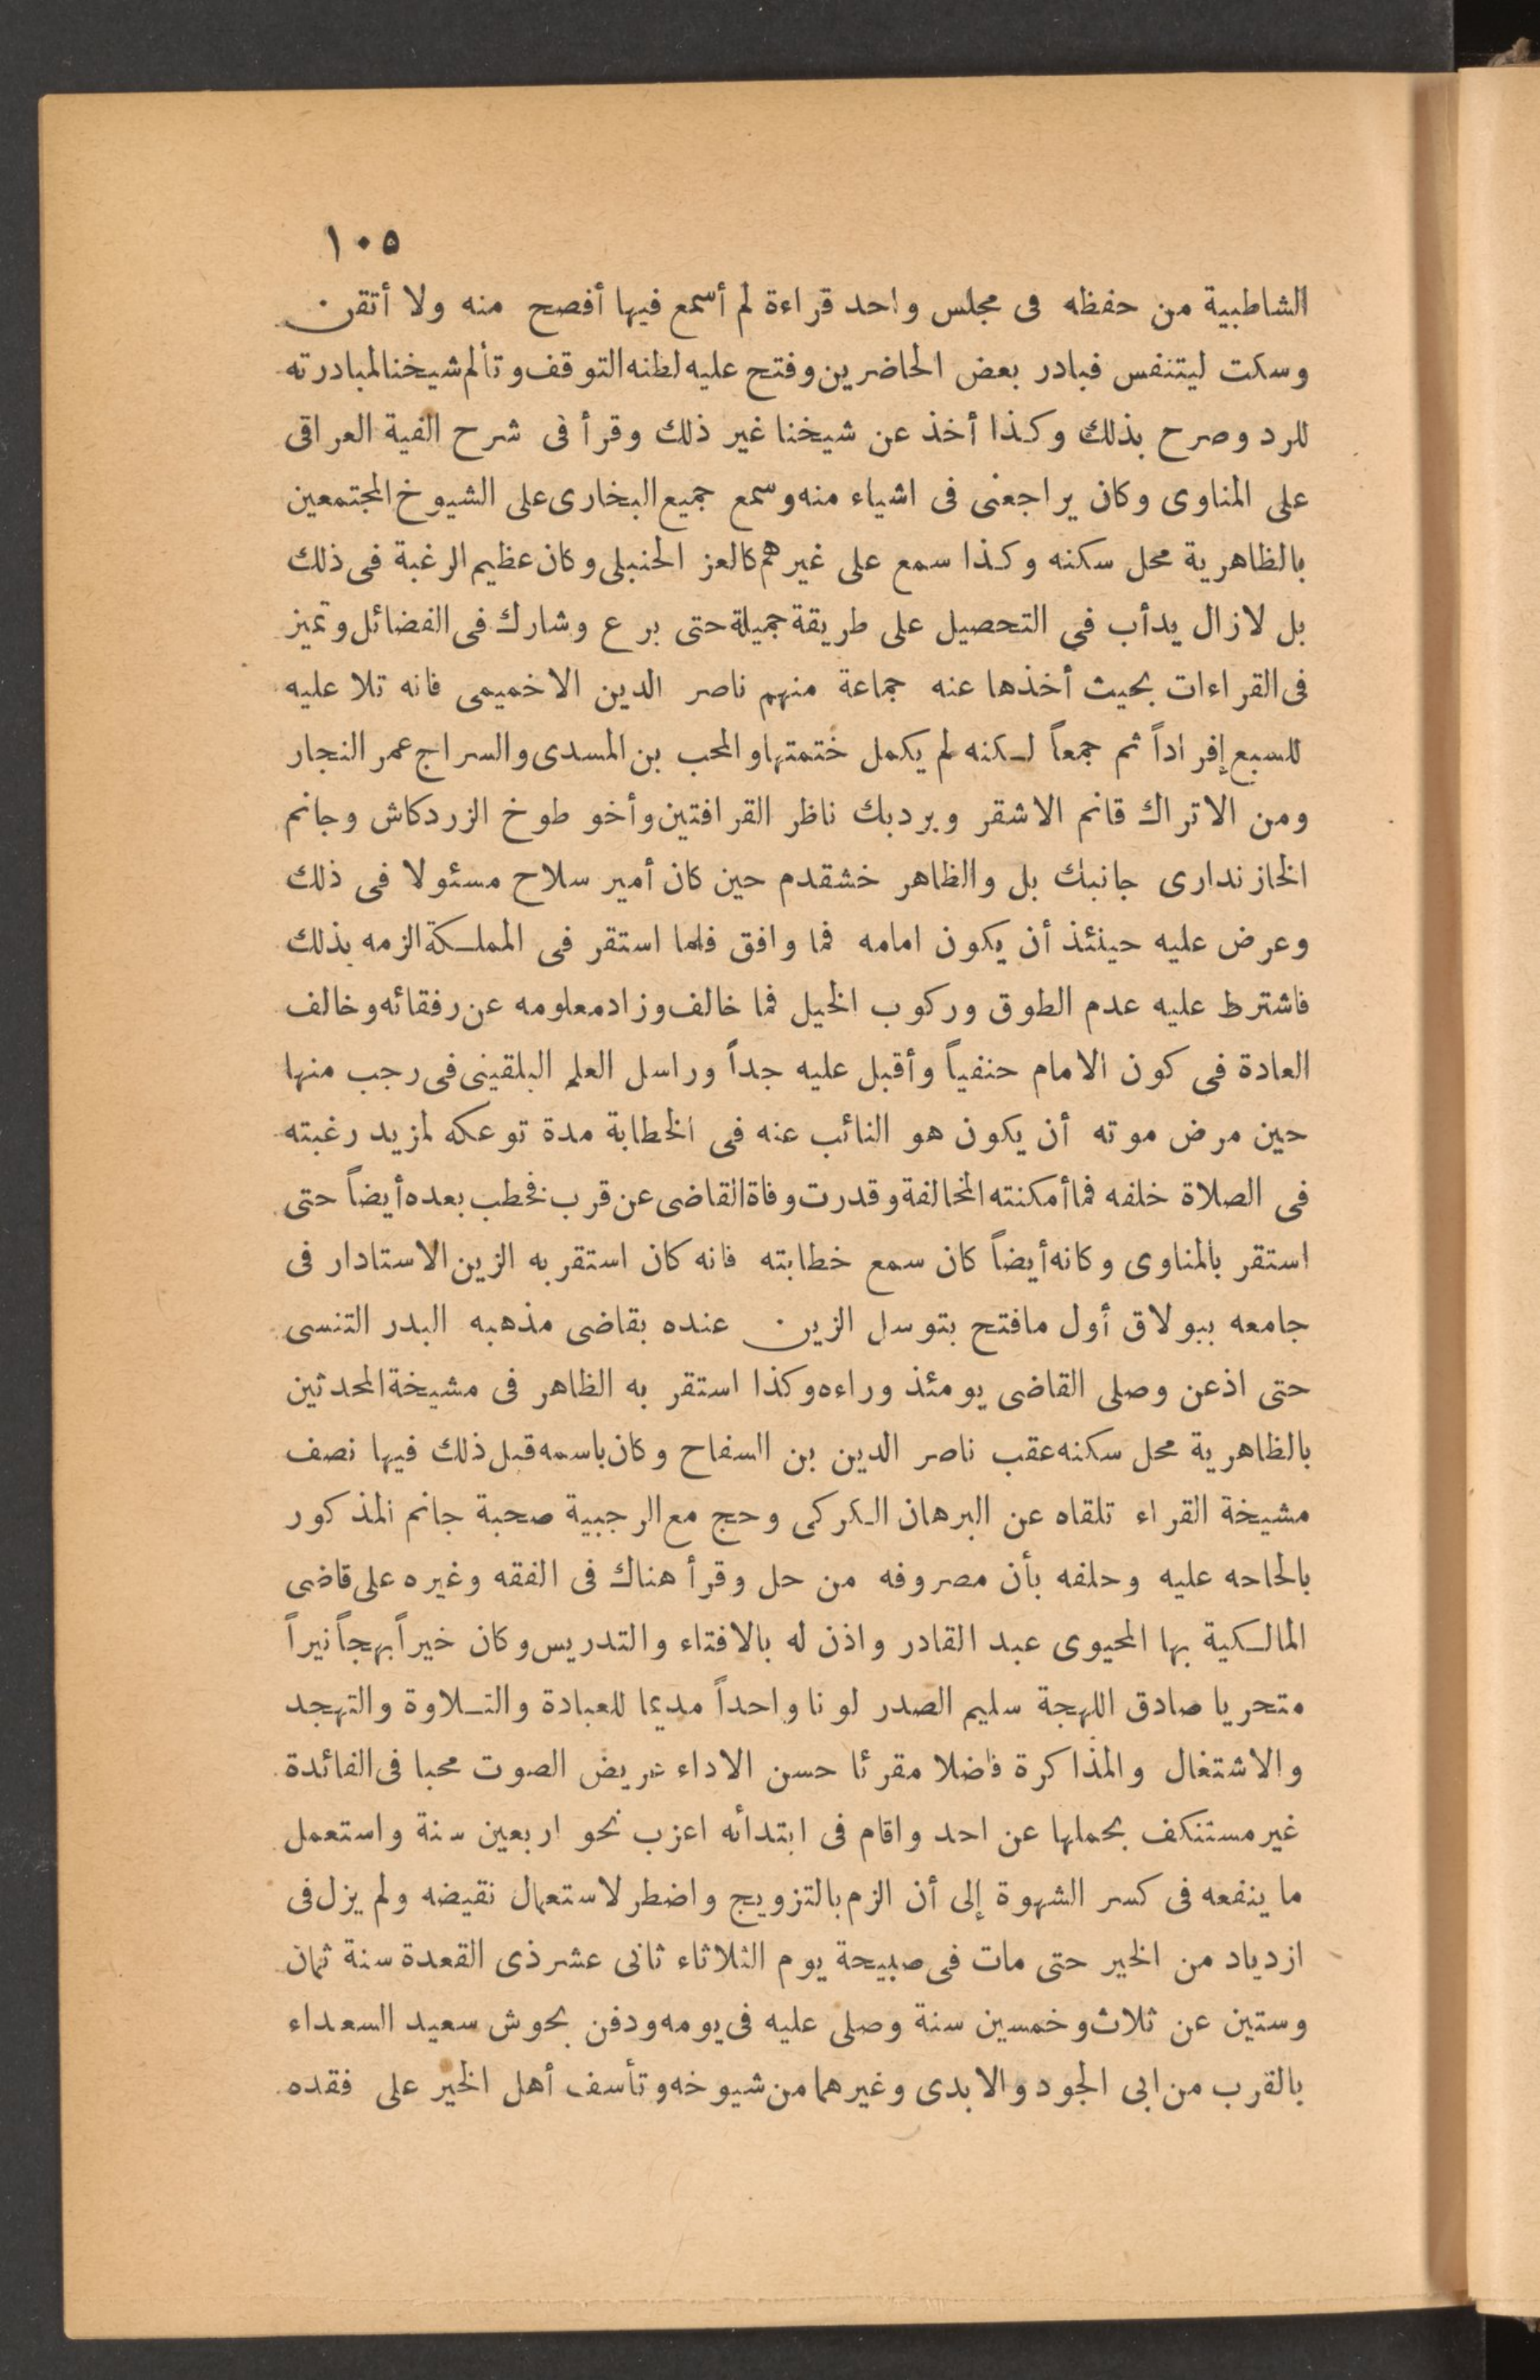 ١٠٥
الشاطبية من حفظه فى مجلس واحد قراءة لم أسمع فيها أفصح منه ولا أتقن
وسكت ليتنفس فبادر بعض الحاضرين وفتح عليه لظنه التوقف وتألم شيخنا لمبادرته
للرد وصرح بذلك وكذا أخذ عن شيخنا غير ذلك وقرأ فى شرح الفية العراقى
على المناوى وكان يراجعنى فى اشياء منه وسمع جميع البخارى على الشيوخ المجتمعين
بالظاهرية محل سكنه وكذا سمع على غيرهم كالعز الحنبلى وكان عظيم الرغبة فى ذلك
بل لازال يدأب فى التحصيل على طريقة جميلة حتى برع وشارك فى الفضائل وتميز
فى القراءات بحيث أخذها عنه جماعة منهم ناصر الدين الاخميمى فانه تلا عليه
للسبع إفراداً ثم جمعاً لكنه لم يكمل ختمتها والمحب بن المسدى والسراج عمر النجار
ومن الاتراك قانم الاشقر وبردبك ناظر القرافتين وأخو طوخ الزردكاش وجانم
الخازندارى جانبك بل والظاهر خشقدم حين كان أمير سلاح مسئولا فى ذلك
وعرض عليه حينئذ أن يكون امامه فما وافق فلما استقر فى المملكة الزمه بذلك
فاشترط عليه عدم الطوق وركوب الخيل فما خالف وزاد معلومه عن رفقائه وخالف
العادة فى كون الامام حنفياً وأقبل عليه جداً وراسل العلم البلقينى فى رجب منها
حين مرض موته أن يكون هو النائب عنه فى الخطابة مدة توعكه لمزيد رغبته
فى الصلاة خلفه فما أمكنته المخالفة وقدرت وفاة القاضى عن قرب فخطب بعده أيضاً حتى
استقر بالمناوى وكانه أيضاً كان سمع خطابته فانه كان استقر به الزين الاستادار فى
جامعه ببولاق أول مافتح بتوسل الزين عنده بقاضى مذهبه البدر التنسى
حتى اذعن وصلى القاضى يومئذ وراءه وكذا استقر به الظاهر فى مشيخة المحدثين
بالظاهرية محل سكنه عقب ناصر الدين بن السفاح وكان باسمه قبل ذلك فيها نصف
مشيخة القراء تلقاه عن البرهان الكركى وحج مع الرجبية صحبة جانم المذكور
بالحاحه عليه وحلفه بأن مصروفه من حل وقرأ هناك فى الفقه وغيره على قاضى
المالكية بها المحيوى عبد القادر واذن له بالافتاء والتدريس وكان خيراً بهجاً نيراً
متحريا صادق اللهجة سليم الصدر لونا واحداً مديما للعبادة والتلاوة والتهجد
والاشتغال والمذاكرة فاضلا مقرئا حسن الاداء عريض الصوت محبا فى الفائدة
غير مستنكف بحملها عن احد واقام فى ابتدائه اعزب نحو اربعين سنة واستعمل
ما ينفعه فى كسر الشهوة إلى أن الزم بالتزويج واضطر لاستعمال نقيضه ولم يزل فى
ازدياد من الخير حتى مات فى صبيحة يوم الثلاثاء ثانى عشر ذى القعدة سنة ثمان
وستين عن ثلاث وخمسين سنة وصلى عليه فى يومه ودفن بحوش سعيد السعداء
بالقرب من ابى الجود والابدى وغيرهما من شيوخه وتأسف أهل الخير على فقده